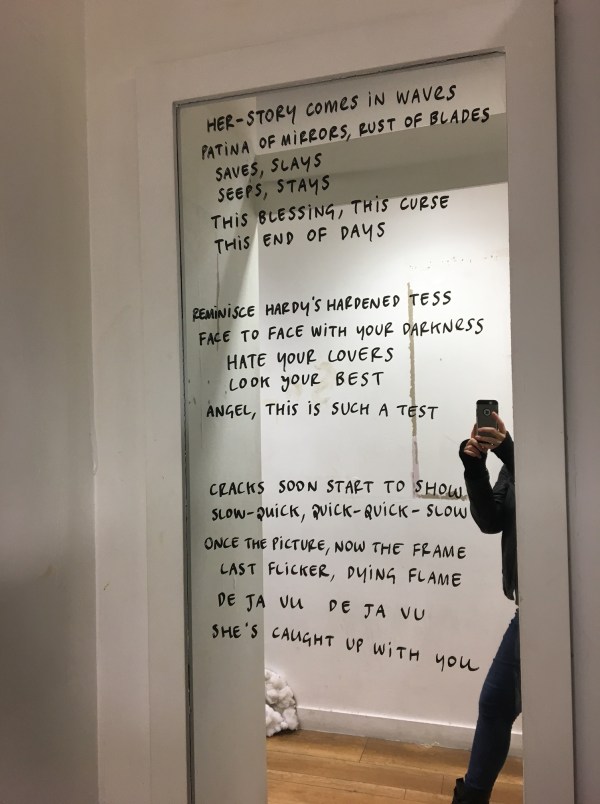 HER-STORY COMES IN WAVES
PATINA OF MIRRORS, RUST OF BLADES
SAVES, SLAYS
SEEPS, STAYS
THIS BLESSING, THIS CURSE
THIS END OF DAYS
REMINISCE HARDY'S HARDENED TESS
FACE TO FACE WITH YOUR DARKNESS
HATE YOUR LOVERS
LOOK YOUR BEST
ANGEL, THIS IS SUCH A TEST
CRACKS SOON START TO SHOW
SLOW-QUICK, QUICK-QUICK-SLOW
ONCE THE PICTURE, NOW THE FRAME
LAST FLICKER, DYING FLAME
DE JA VU DE JA VU
SHE'S CAUGHT UP WITH YOU